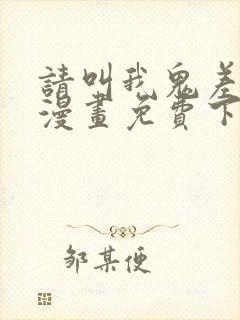 請叫我鬼差
漫畫免費下
邹某便